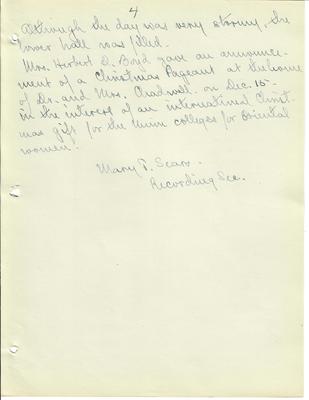 4
Although the day was very stormy, the
lower hall was filled.
Mrs. Herbert D. Boyd gave an announce-
ment of a Christmas Pageant at the home
of Dr. and Mrs. Chadwell. on Dec. 15-
in the interest of an international Christ-
mas gift for the Union colleges for Oriental
women.
Mary P. Sears.
Recording Sec.